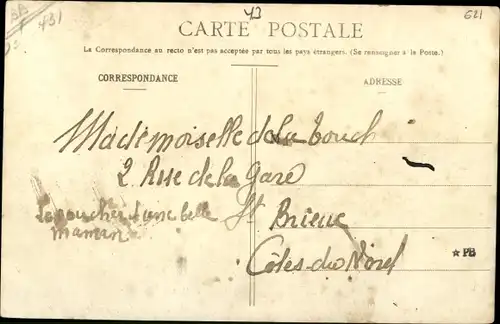 43
621
431
CARTE POSTALE
La Correspondance au recto n'est pas acceptée par tous les pays étrangers. (Se renseigner à la Poste.)
CORRESPONDANCE
ADRESSE
Mademoiselle de la Touch
2 Rue de la Gare
St Brieuc
Côtes-du-Nord
d'une belle
maman
★ PB